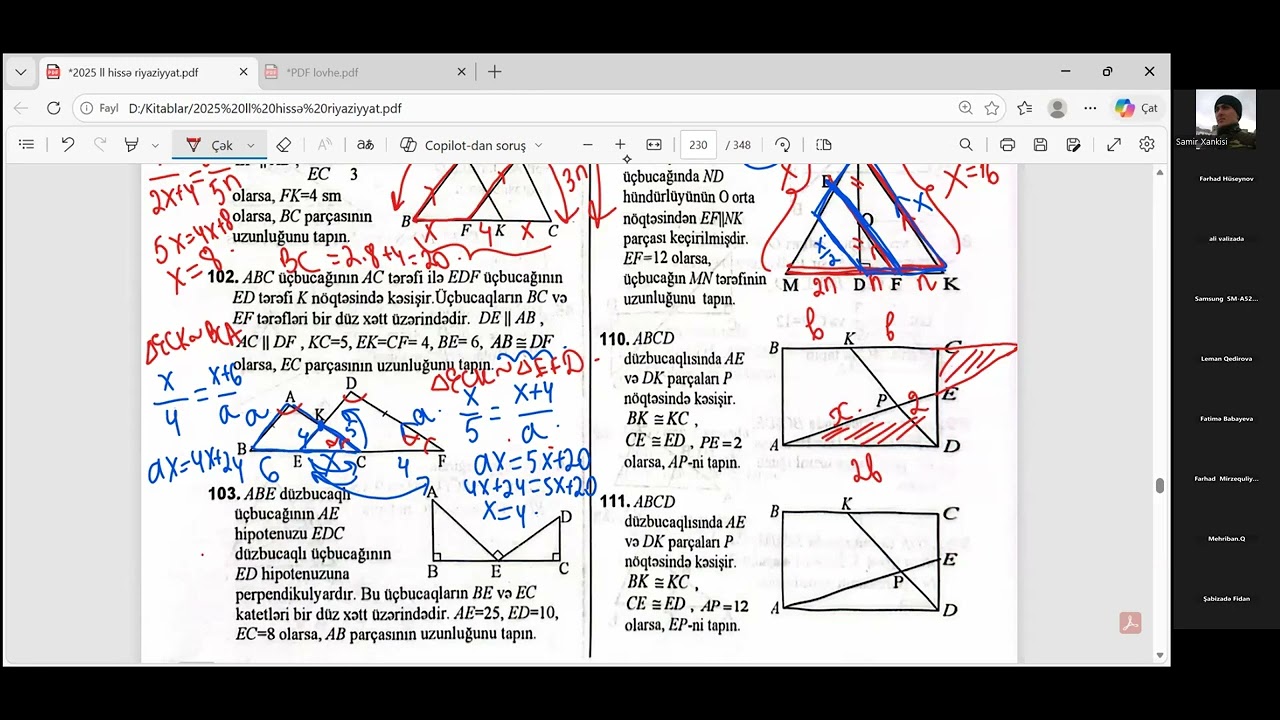 *2025 ll hissə riyaziyyat.pdf
*PDF lovhe.pdf
Fayl
D:/Kitablar/2025%20ll%20hissə%20riyaziyyat.pdf
Çat
Çək
aあ
Copilot-dan soruş
230 / 348
EC 3
olarsa, FK=4 sm
olarsa, BC parçasının
uzunluğunu tapın.
2x+4
5n
5x=4x+8
x=8
BC =2.8+4=20
B F K C
x 4 x
3n
102. ABC üçbucağının AC tərəfi ilə EDF üçbucağının
ED tərəfi K nöqtəsində kəsişir.Üçbucaqların BC və
EF tərəfləri bir düz xətt üzərindədir. DE || AB ,
AC || DF , KC=5, EK=CF= 4, BE= 6, AB ≅ DF
olarsa, EC parçasının uzunluğunu tapın.
ΔECK~BCA
ΔECK~ΔEFD
x/4 = x+6/a
ax=4x+24
x/5 = x+4/a
ax=5x+20
4x+24=5x+20
x=4
D
A
K
a 4 5 a
B E C F
6 x 4
103. ABE düzbucaqlı
üçbucağının AE
hipotenuzu EDC
düzbucaqlı üçbucağının
ED hipotenuzuna
perpendikulyardır. Bu üçbucaqların BE və EC
katetləri bir düz xətt üzərindədir. AE=25, ED=10,
EC=8 olarsa, AB parçasının uzunluğunu tapın.
A
D
B E C
üçbucağında ND
hündürlüyünün O orta
nöqtəsindən EF||NK
parçası keçirilmişdir.
EF=12 olarsa,
üçbucağın MN tərəfinin
uzunluğunu tapın.
x=16
x
x/2
O
M D F K
2n n n
110. ABCD
düzbucaqlısında AE
və DK parçaları P
nöqtəsində kəsişir.
BK ≅ KC ,
CE ≅ ED , PE=2
olarsa, AP-ni tapın.
b b
B K C
P 2 E
x
A D
2b
111. ABCD
düzbucaqlısında AE
və DK parçaları P
nöqtəsində kəsişir.
BK ≅ KC ,
CE ≅ ED , AP=12
olarsa, EP-ni tapın.
B K C
E
P
A D
Samir Xankisi
Fərhad Hüseynov
ali valizada
Samsung SM-A52...
Leman Qedirova
Fatima Babayeva
Farhad Mirzequliy...
Mehriban.Q
Şabizadə Fidan